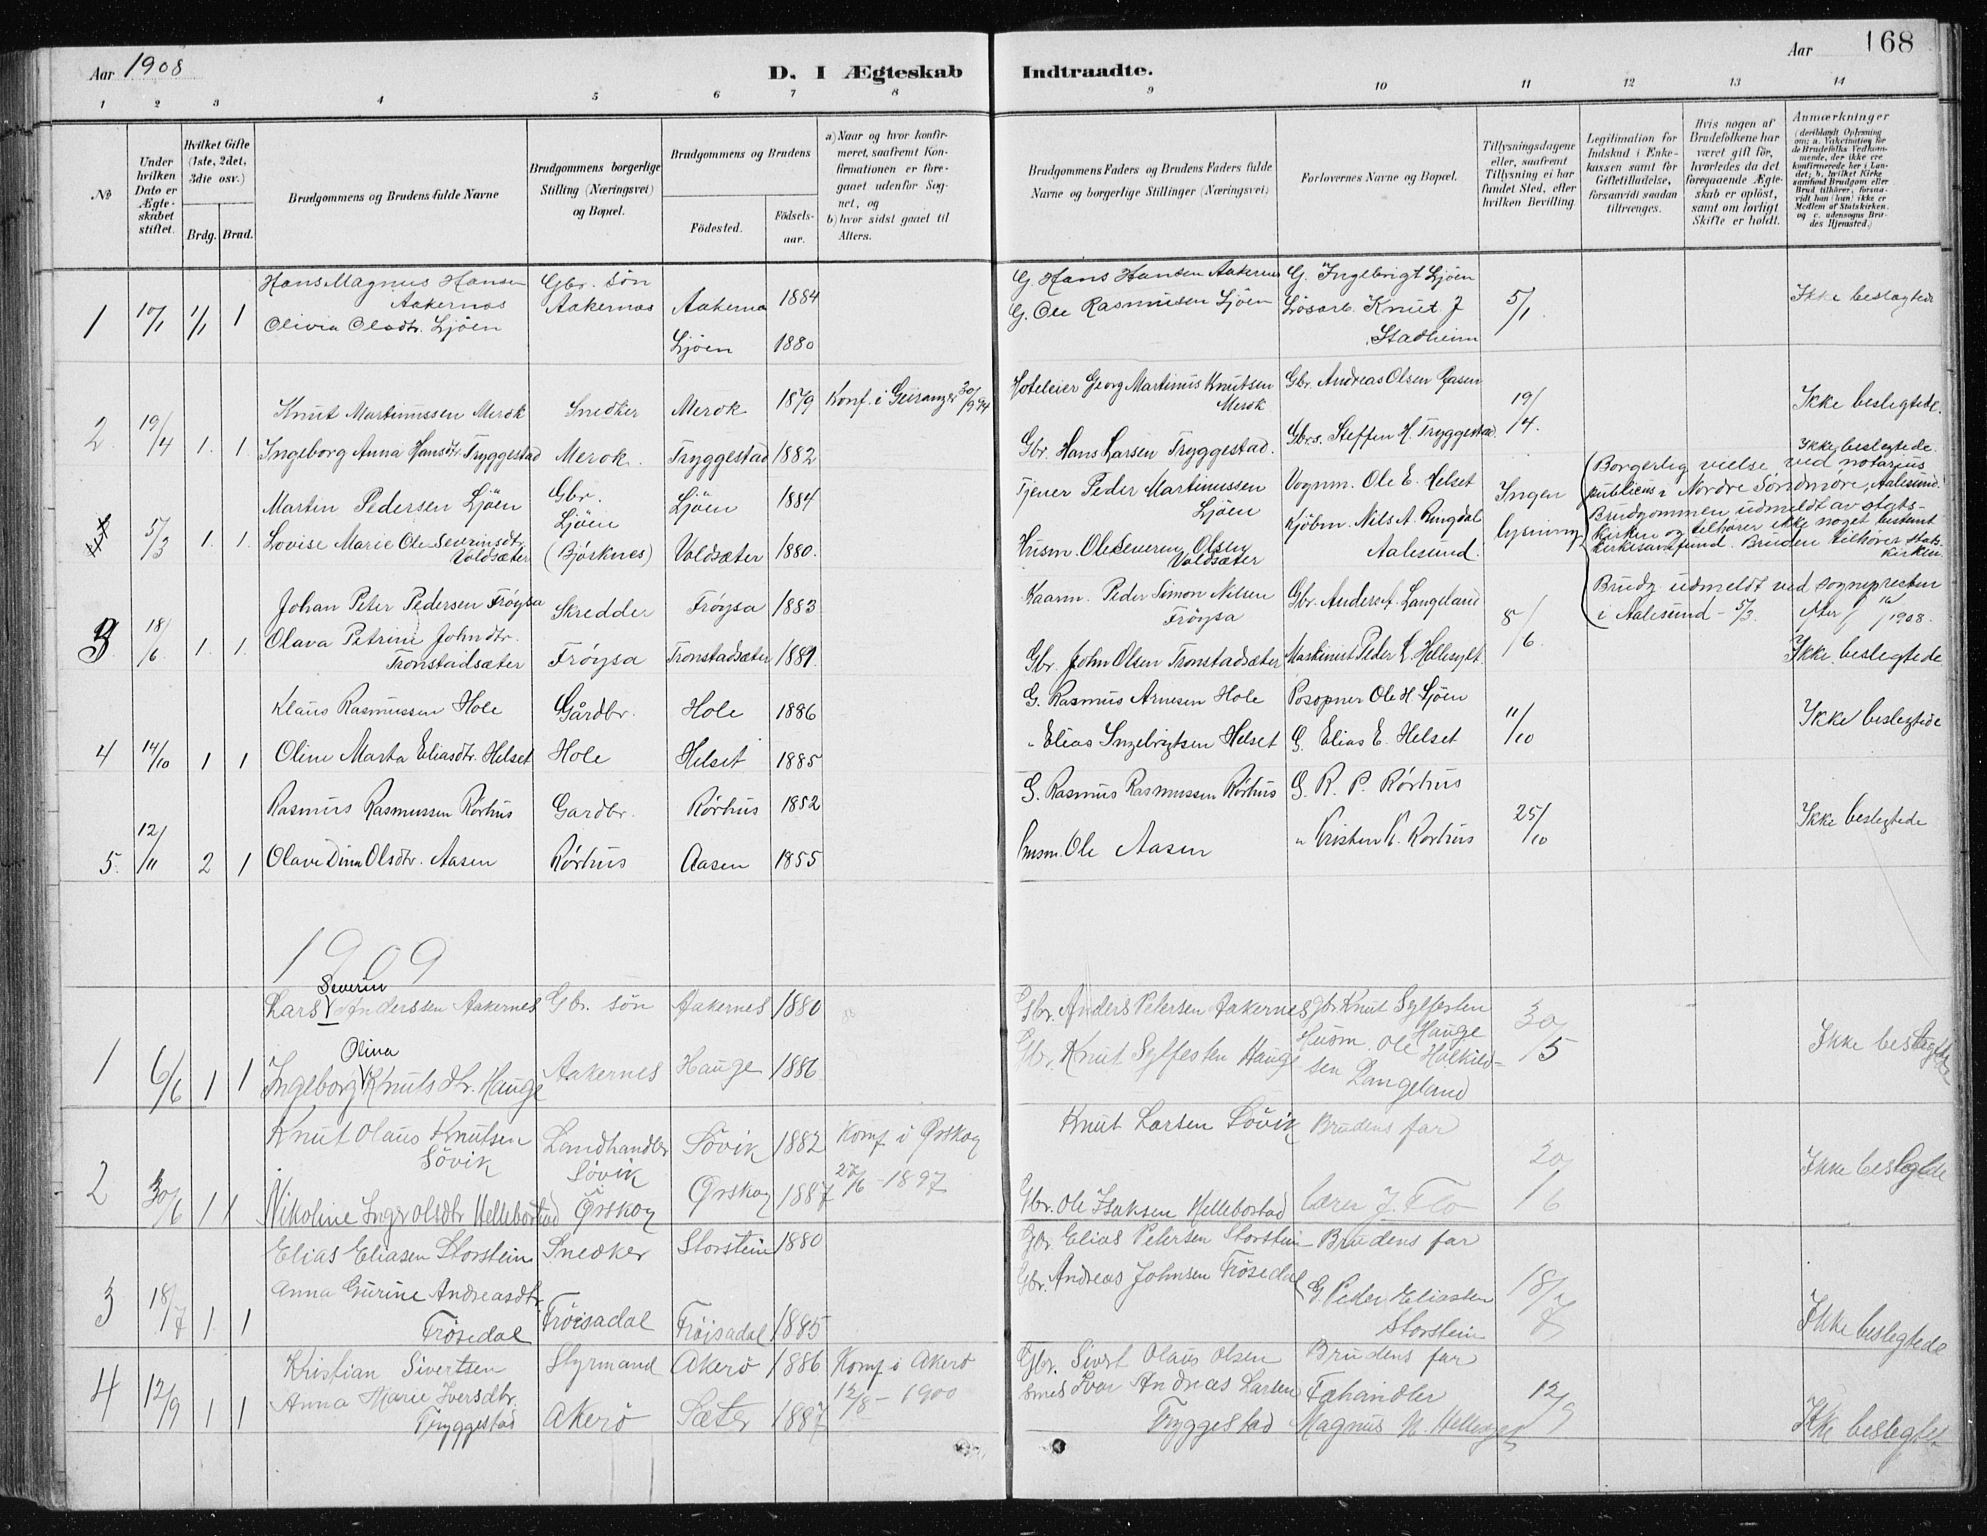 Aar 1908
D. I Ægteskab Indtraadte.
Aar 168
1 2 3 4 5 6 7 8 9 10 11 12 13 14
No
Under hvilken Dato er Ægteskabet stiftet.
Hvilket Gifte (1ste, 2det, 3die osv.)
Brdg. Brud.
Brudgommens og Brudens fulde Navne
Brudgommens borgerlige Stilling (Næringsvei) og Bopæl.
Brudgommens og Brudens
Fødested.
Fødselsaar.
a) Naar og hvor konfirmeret, saafremt Konfirmationen er foregaaet udenfor Sognet, og
b) hvor sidst gaaet til Alters.
Brudgommens Faders og Brudens Faders fulde Navne og borgerlige Stillinger (Næringsvei)
Forlovernes Navne og Bopæl.
Tillysningsdagene eller, saafremt Tillysning ei har fundet Sted, efter hvilken Bevilling
Legitimation for Indskud i Enkekassen samt for Giftetilladelse, forsaavidt saadan tiltrænges.
Hvis nogen af Brudefolkene har været gift før, hvorledes da det foregaaende Ægteskab er opløst, samt om lovligt Skifte er holdt.
Anmærkninger
(deriblandt Oplysning om; a. Vakcination for de Brudefolks Vedkommende, der ikke ere konfirmerede her i Landet; b. hvilket Kirkesamfund Brudgom eller Brud tilhører, forsaavidt han (hun) ikke er Medlem af Statskirken, og c. udensogns Brudes Hjemsted.)
Hans Magnus Hansen Gbr. søn 1884 G. Hans Hansen Aakernes G. Ingebrigt Ljøen
1 10/1 1/1 1 Aakernes Aakernes Aakernes G. Ole Rasmussen Ljøen Løsarb. Knut J 5/1. Ikke beslægtede
Olivia Olsdtr. Ljøen Ljøen 1880 Stadheim
Knut Martinussen Merok Snedker Merok 1879 Konf. i Geiranger 30/9 94 Hoteleier Georg Martinus Knutsen Merok Gbr. Andreas Olsen Ikke beslegtede.
2. 19/4 1. 1. Ingeborg Anna Hansdtr. Tryggestad Merok. Tryggestad 1882 Gbr. Hans Larsen Tryggestad. Gbrs. Steffen H. Tryggestad. 19/4.
Martin Pedersen Ljøen Gbr. Ljøen Ljøen 1884 Tjener Peder Martinussen Ljøen Vognm. Ole E. Helset Ingen lysning
5/3 1. 1. Lovise Marie Ole Severinsdtr. Voldsæter (Bjørknes) Voldsæter 1880. Husm. Ole Severin Olsen Voldsæter Kjøbm. Nils A. Ringdal Aalesund.
Ikke beslegtede.
Borgerlig vielse ved notarius
publicus i Nordre Søndmøre, Aalesund.
Brudgommen udmeldt av stats-
kirken og tilhører ikke noget bestemt
kirkesamfund. Bruden tilhører stats-
kirken.
Johan Peter Pedersen Frøysa Skredder Frøysa 1883 Kaarm. Peder Simon Nilsen Frøysa Gbr. Anders A. Langeland 8/6
Brudg udmeldt ved sognepresten
i Aalesund - 5/3 1908.
3. 18/6 1. 1. Olava Petrine Johndtr. Tronstadsæter Frøysa Tronstadsæter 1881. Gbr. John Olsen Tronstadsæter Maskinist Peder L. Hellesylt. Ikke beslegtede
Klaus Rasmussen Hole Gårdbr. Hole 1886 G. Rasmus Arnesen Hole Posopner Ole H. Ljøen 11/10 Ikke beslegtede
4 14/10 1 1 Oline Marta Eliasdtr. Helset Hole Helset 1885 " Elias Ingebrigtsen Helset G. Elias E. Helset
Rasmus Rasmussen Rørhus Gardbr. Rørhus 1852 G. Rasmus Rasmussen Rørhus G. R. P. Rørhus 25/10 Ikke beslegtede
5. 12/11 2 1 Olave Dina Olsdtr. Aasen Rørhus Aasen 1855 Husm. Ole Aasen " Kristen K. Rørhus
1909
Severin
Lars Anderssen Aakernes Gbr. søn Aakernes 1880 Gbr. Anders Petersen Aakernes Gbr Knut Sylfesten Hauge 30/5 Ikke beslegtede
Olina
1 6/6 1 1 Ingeborg Knutsdtr. Hauge Aakernes Hauge 1886 Gbr. Knut Sylfesten Hauge Husm. Ole Halkild-
sen Langeland
Knut Olaus Knutsen Søvik Landhandler Søvik Søvik 1882 Komf i Ørskog 27/6 - 1897 Knut Larsen Søvik Brudens far 20/6 Ikke beslegtede
2 30/6 1 1 Nikoline Inger Olsdtr Hellebostad Ørskog Ørskog 1887 Gbr. Ole Isaksen Hellebostad Lærer J. Flo
Elias Eliasen Storstein Snedker Storstein 1880 Gbr. Elias Petersen Storstein Brudens far 18/7
3 18/7 1. 1 Anna Gurine Andreasdtr. Frøsedal Frøisadal Frøisadal 1885 Gbr. Andreas Johnsen Frøsedal G. Peder Eliassen Storstein Ikke beslegtede
Kristian Sivertsen Styrmand Akerø 1886 Komf i Akerø 12/8 - 1900 Gbr. Sivert Olaus Olsen Brudens far 12/9
4 12/9 1 1 Anna Marie Iversdtr. Tryggestad Akerø Sæter 1887 Smed Ivar Andreas Larsen Tryggestad Fehandler Magnus N. Hellesylt Ikke beslegtet